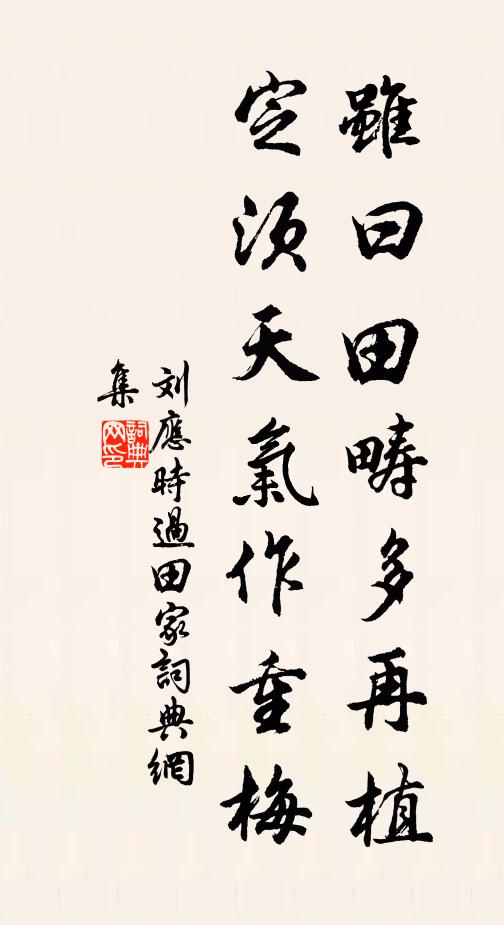 雖曰田疇多再植
定須天氣作重梅
刘應時過田家詞典網
集
詞典网印